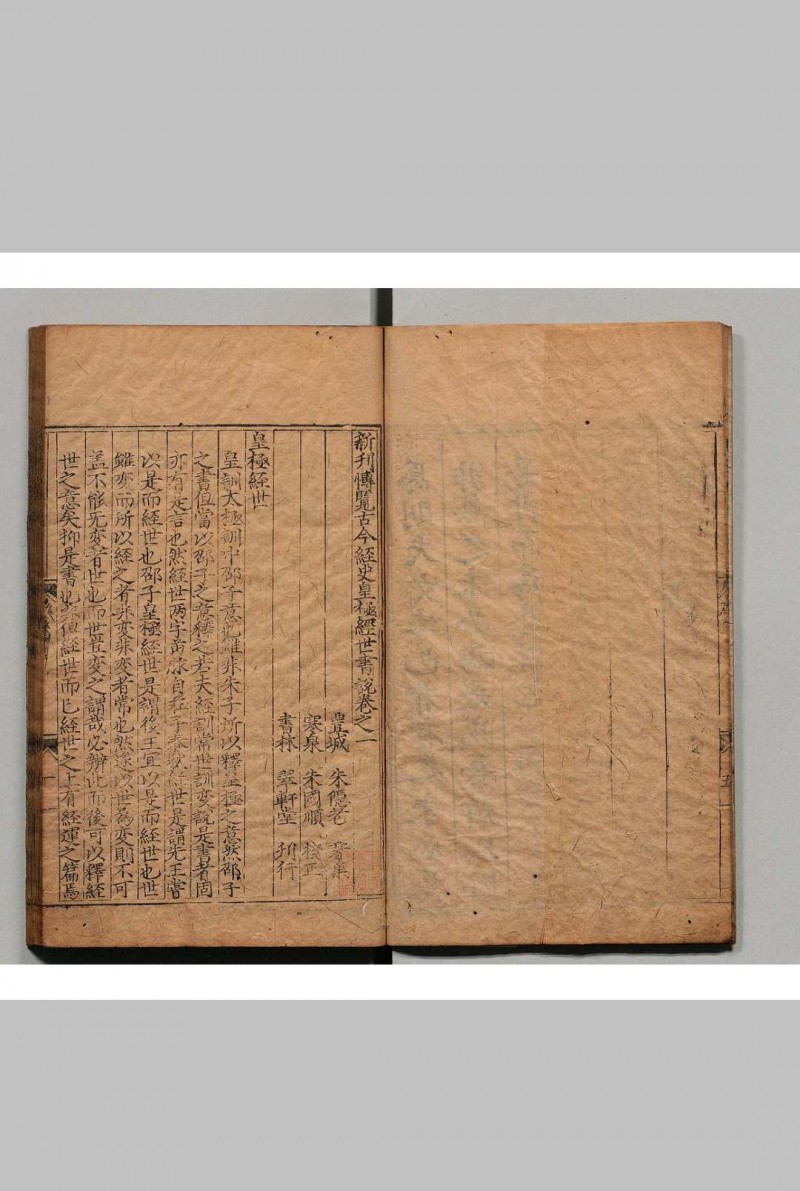 新刊愽覧古今經史皇極經世書說卷之一
豊城 朱隠老
寒泉 朱國順 校正
書林 翠軒堂 刊行
皇極經世
皇訓大極訓中邵子意也雖非朱子所以釋皇極之意然邵子
之書但當以邵子之意釋之若夫經訓常世訓変說是書者固
亦有是言也然經世两字音脉自莊子春秋經世是謂先王嘗
以是而經世也邵子皇極經世是謂後王宜以是而經世也世
雖変而所以經之者非変非変者常也然遂以世為変則不可
盖不能无変者世也而世豈変之謂哉必辨此而後可以釋經
世之意矣抑是書也非但經世而已經世之上有經運之篇焉